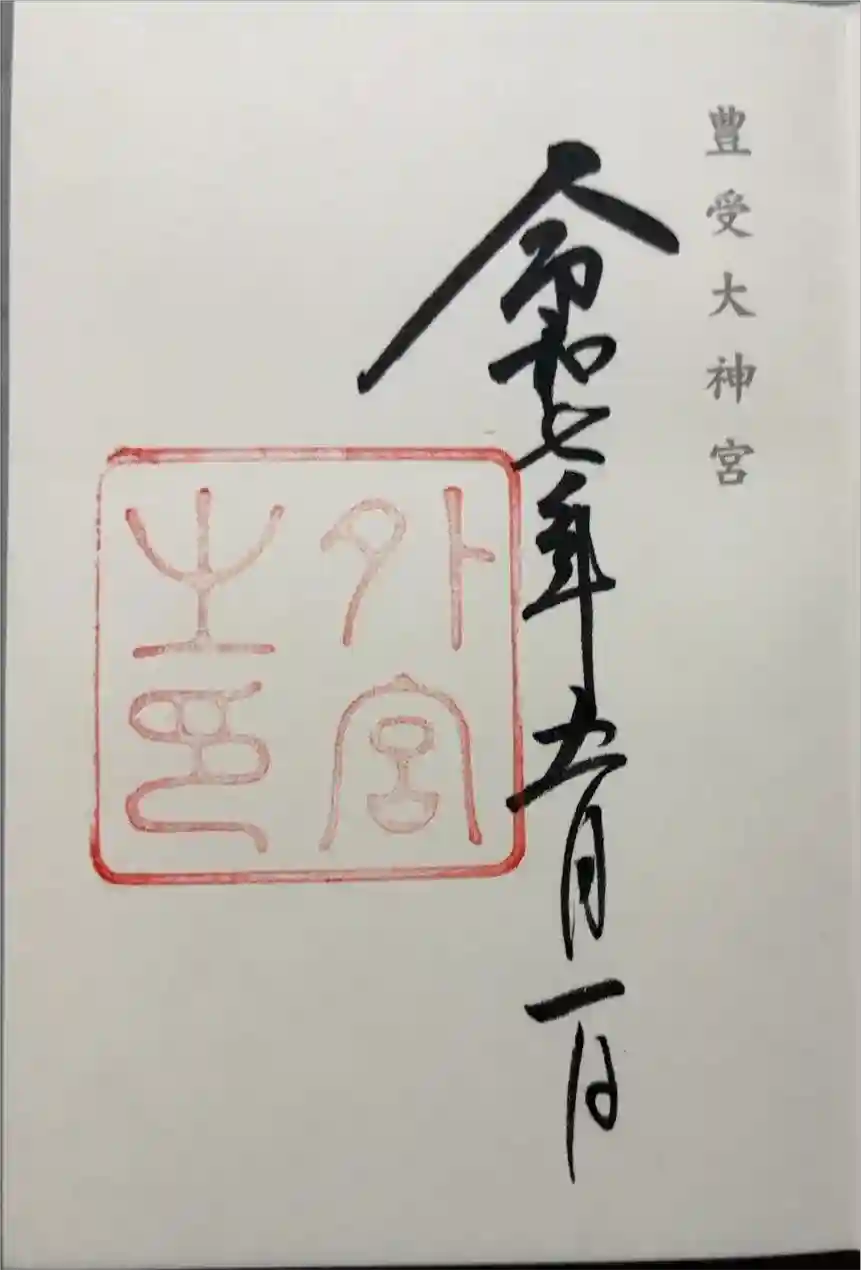 豊受大神宮
令和七年五月一日
外宮之印